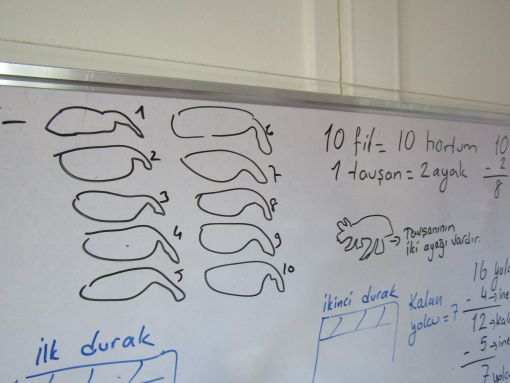 1
2
3
4
5
6
7
8
9
10
10 fil = 10 hortum
1 tavşan = 2 ayak
10
- 2
8
Tavşanının
iki ayağı vardır.
ilk durak
ikinci durak
Kalan
yolcu = 7
16
- 4 →
12
- 5 →
7